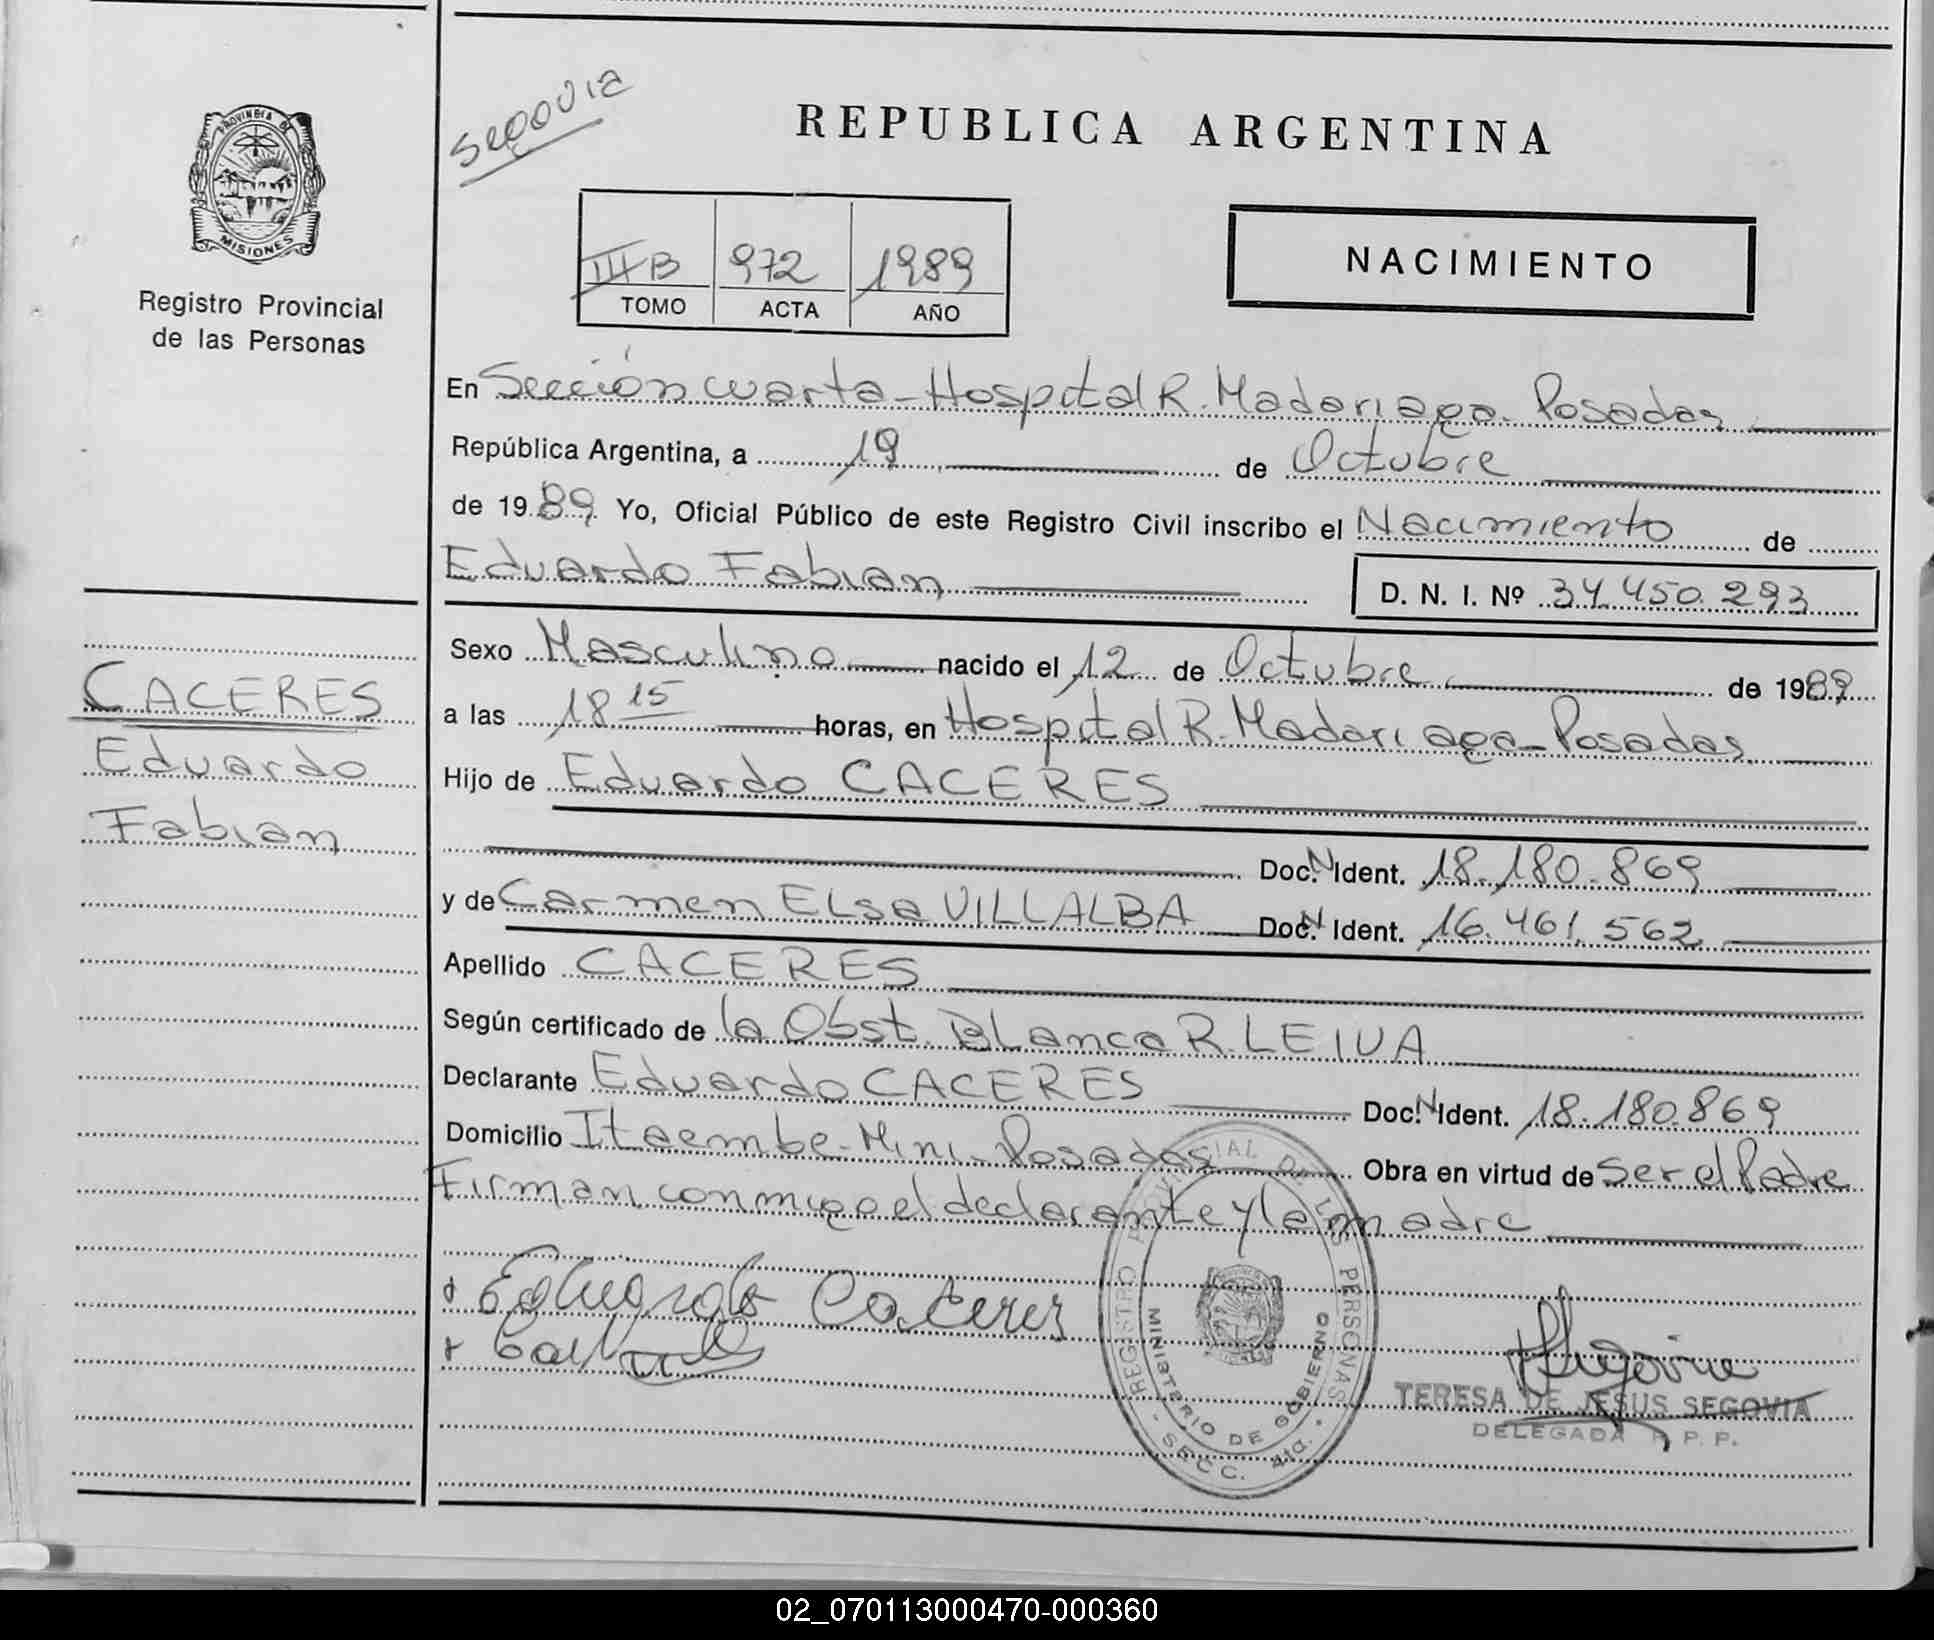 PROVINCIA DE
MISIONES
Registro Provincial
de las Personas
CACERES
Eduardo
Fabian
Segovia
REPUBLICA ARGENTINA
III B 972 1989
TOMO ACTA AÑO
NACIMIENTO
En Sección cuarta - Hospital R. Madariaga - Posadas
República Argentina, a 19 de Octubre
de 1989 Yo, Oficial Público de este Registro Civil inscribo el Nacimiento de
Eduardo Fabian D. N. I. Nº 34.450.293
Sexo Masculino nacido el 12 de Octubre de 1989
a las 18 15 horas, en Hospital R. Madariaga - Posadas
Hijo de Eduardo CACERES
Doc. N Ident. 18.180.869
y de Carmen Elsa VILLALBA Doc. N Ident. 16.461.562
Apellido CACERES
Según certificado de la Obst. Blanca R. LEIVA
Declarante Eduardo CACERES Doc. N Ident. 18.180.869
Domicilio Itaembe - Mini - Posadas Obra en virtud de Ser el Padre
Firman conmigo el declarante y la madre
Eduardo Caceres
REGISTRO PROVINCIAL DE LAS PERSONAS
MINISTERIO DE GOBIERNO
- SECC. 4ta. -
Segovia
TERESA DE JESUS SEGOVIA
DELEGADA R. P. P.
02_070113000470-000360